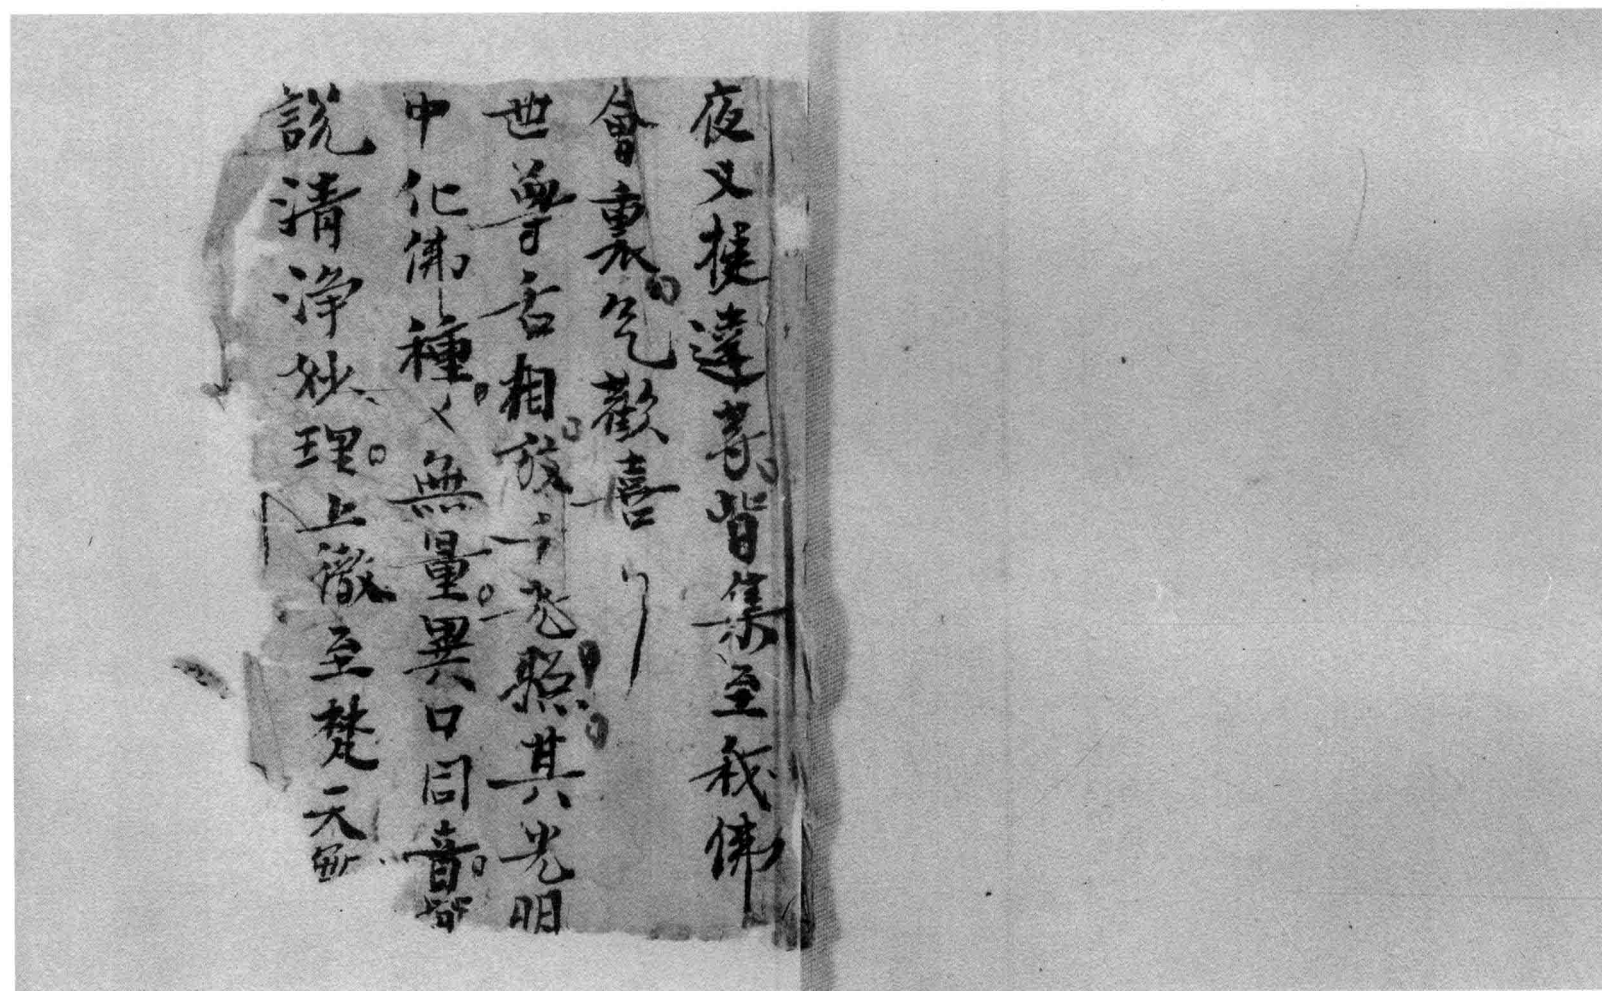 夜叉揵達等皆集至我佛
會裏气歡喜
世尊舌相放千光照其光明
中化佛種〻無量異口同音皆
説清淨妙理上徹至梵天無